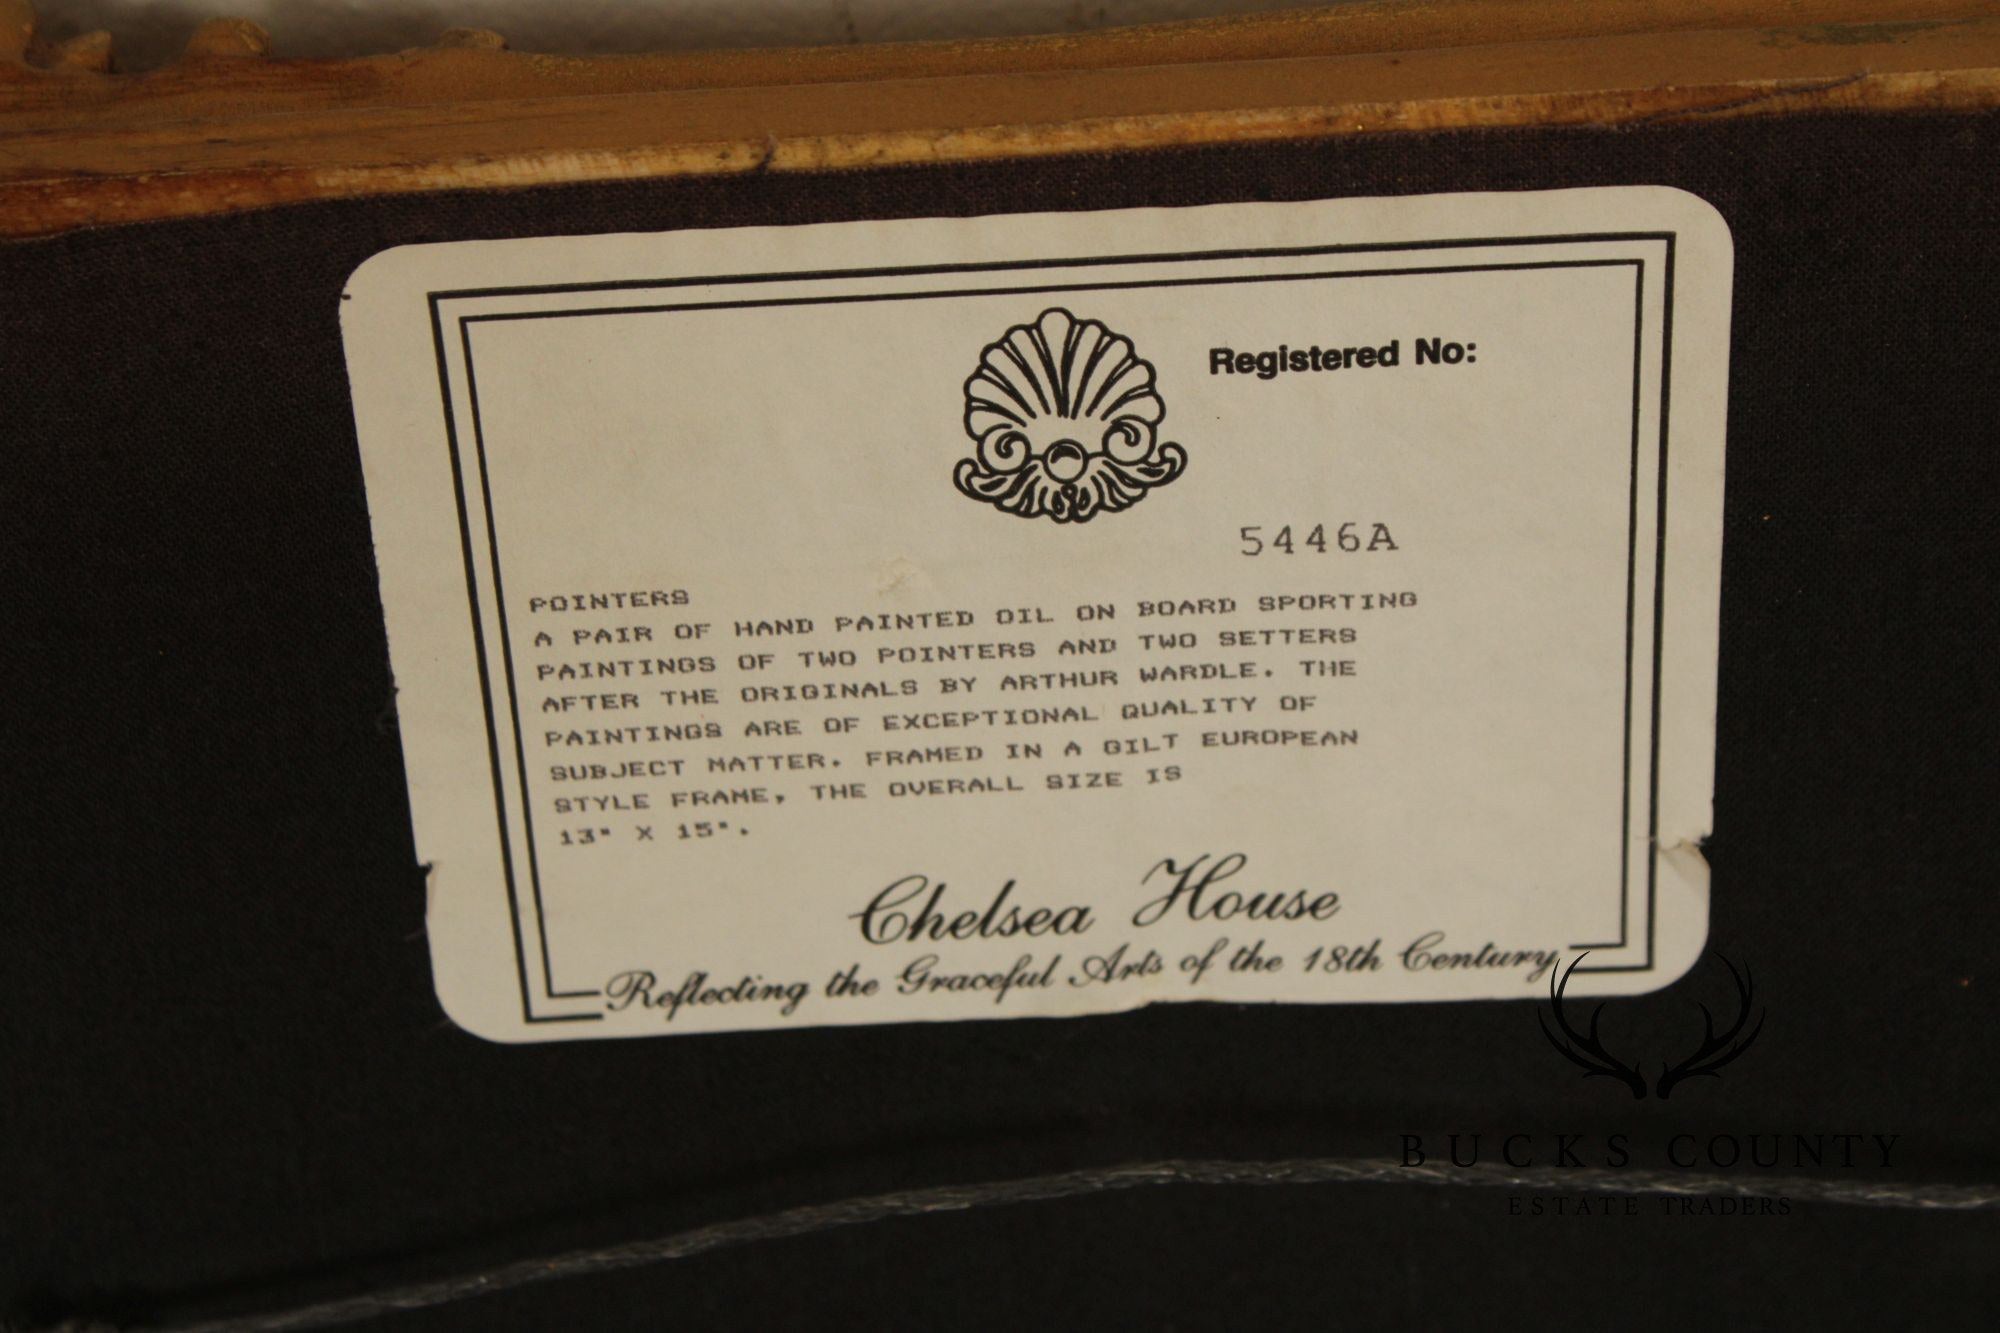 Registered No:
5446A
POINTERS
A PAIR OF HAND PAINTED OIL ON BOARD SPORTING
PAINTINGS OF TWO POINTERS AND TWO SETTERS
AFTER THE ORIGINALS BY ARTHUR WARDLE. THE
PAINTINGS ARE OF EXCEPTIONAL QUALITY OF
SUBJECT MATTER. FRAMED IN A GILT EUROPEAN
STYLE FRAME, THE OVERALL SIZE IS
13" X 15".
Chelsea House
Reflecting the Graceful Arts of the 18th Century
BUCKS COUNTY
ESTATE TRADERS